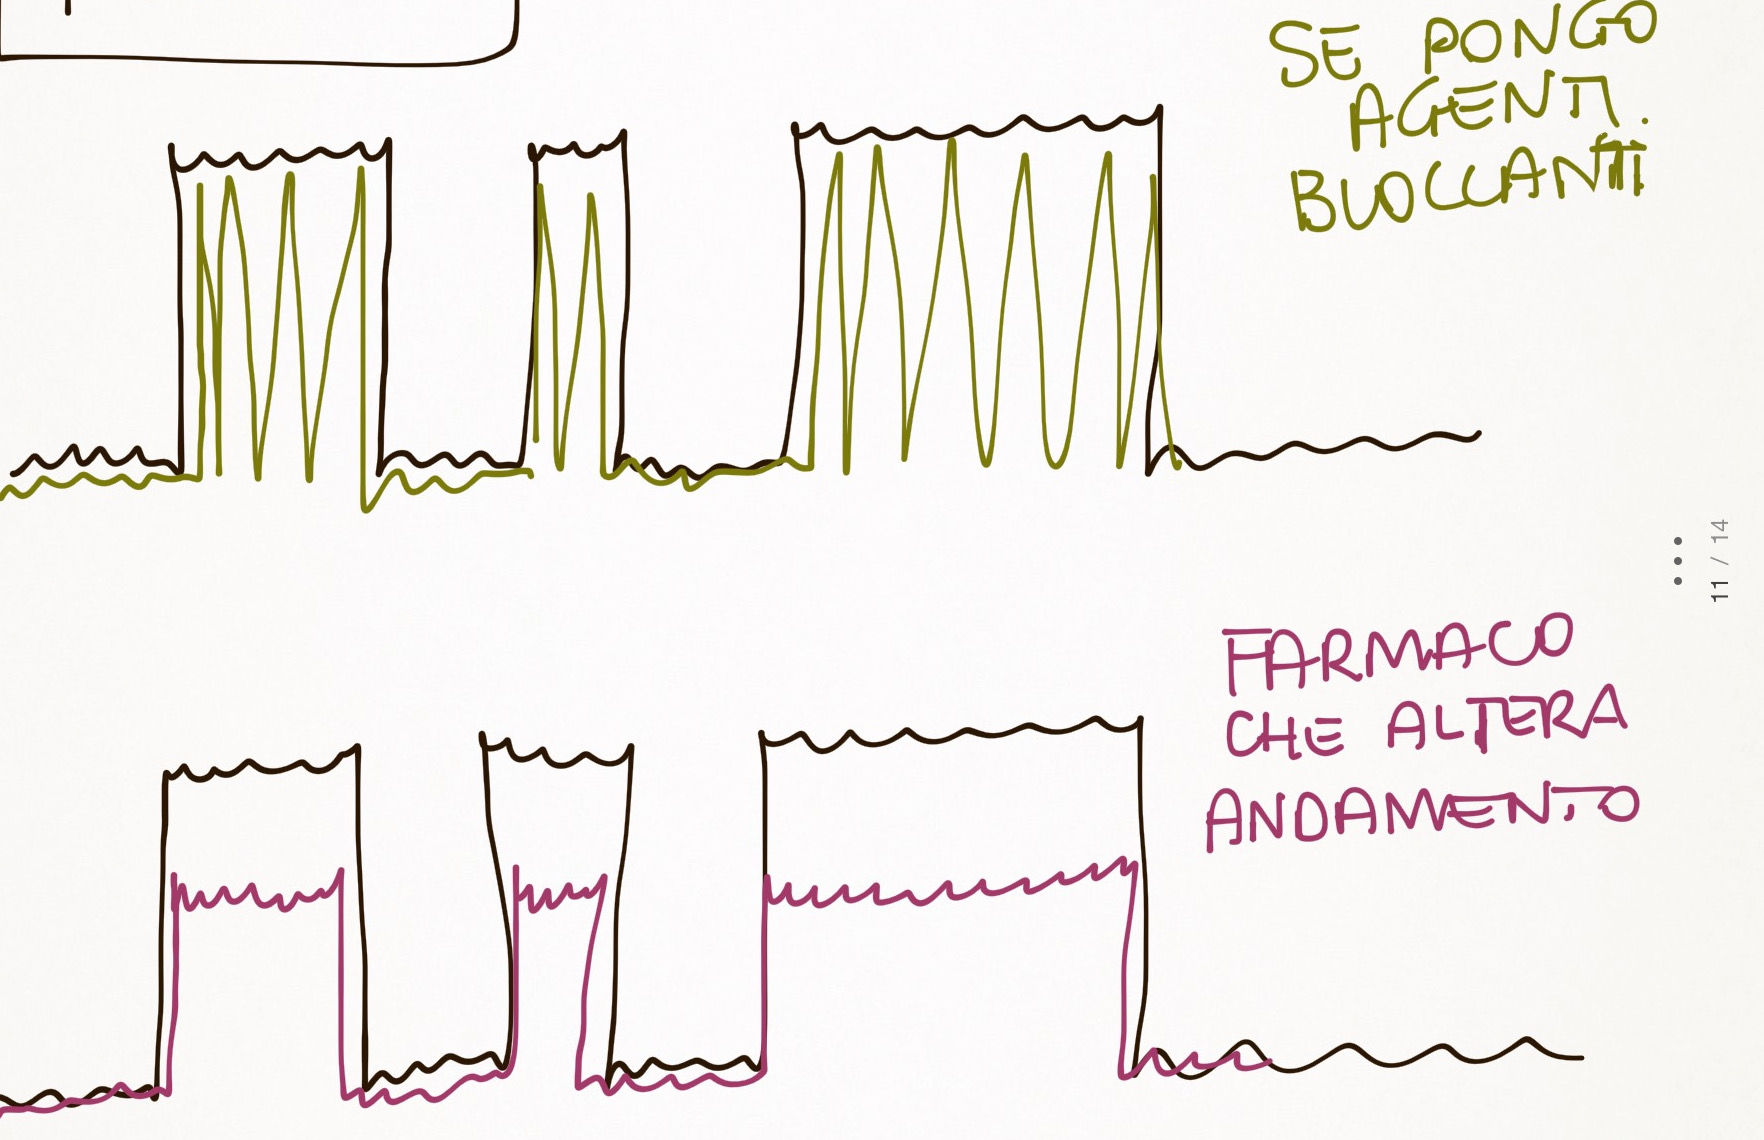 SE PONGO
AGENTI
BLOCCANTI
11 / 14
FARMACO
CHE ALTERA
ANDAMENTO